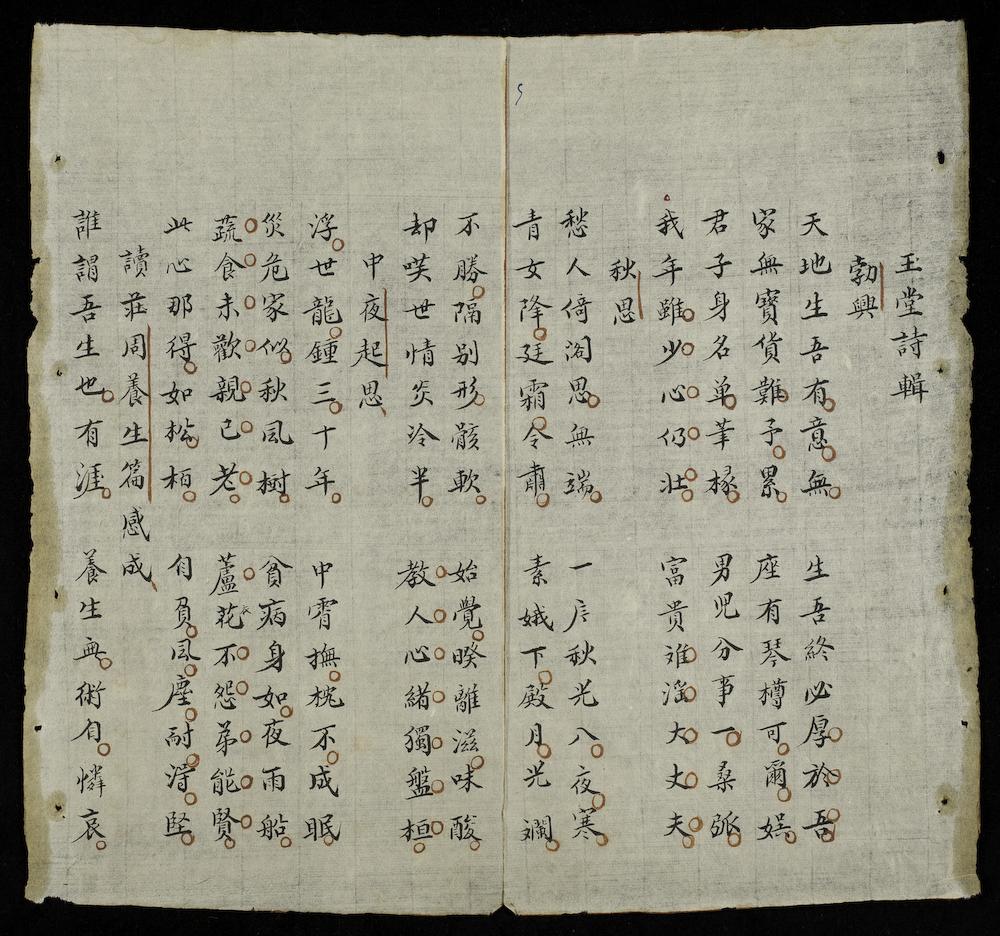 玉堂詩輯
勃興
天地生吾有意無 生吾終必厚於吾
家無寶貨難予累 座有琴樽可爾娛
君子身名单筆椽 男児分事一桑弧
我年雖少心仍壯 富貴难淫大丈夫
秋思
愁人倚阁思無端 一户秋光入夜寒
青女降廷霜令肅 素娥下殿月光斓
不勝隔别形骸軟 始覺暌離滋味酸
却嘆世情炎冷半 教人心緒獨盤桓
中夜起思
浮世龍鍾三十年 中宵撫枕不成眠
災危家似秋風樹 貧病身如夜雨船
蔬食未歡親已老 蘆花不怨弟能賢
此心那得如松栢 自負風塵耐得堅
讀莊周養生篇感成
誰謂吾生也有涯 養生無術自憐哀